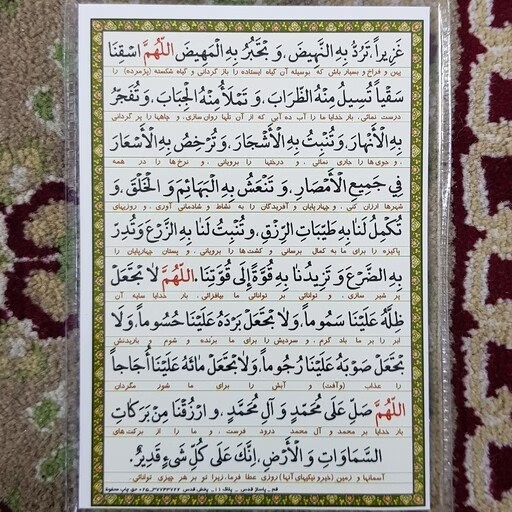 غَزِيراً، تَرُدُّ بِهِ النَّهِيضَ، وَ تَجْبُرُ بِهِ الْمَهِيضَ اَللّٰهُمَّ اسْقِنَا
پین و فراخ و بسیار باش که بوسیله آن گیاه ایستاده را باز گردانی و گیاه شکسته (پژمرده) را
سَقْیاً تُسِيلُ مِنْهُ الظِّرَابَ، وَ تَمْلَأُ مِنْهُ الْجِبَابَ، وَ تُفَجِّرُ
درست نمائی. بار خدایا ما را آب ده آبی که از آن تلها روان سازی، و چاهها را پر گردانی
بِهِ الْأَنْهَارَ، وَ تُنْبِتُ بِهِ الْأَشْجَارَ، وَ تُرْخِصُ بِهِ الْأَسْعَارَ
، و جوی‌ها را جاری نمائی، و درختها را برویانی، و نرخ‌ها را در همه
فِي جَمِيعِ الْأَمْصَارِ، وَ تَنْعَشُ بِهِ الْبَهَائِمَ وَ الْخَلْقَ، وَ
شهرها ارزان کنی، و چهارپایان و آفریدگان را به نشاط و شادمانی آوری، و روزیهای
تُكْمِلُ لَنَا بِهِ طَيِّبَاتِ الرِّزْقِ، وَ تُنْبِتُ لَنَا بِهِ الزَّرْعَ وَ تُدِرُّ
پاکیزه را برای ما به کمال برسانی و کشت‌ها را برویانی، و پستان چهارپایان را
بِهِ الضَّرْعَ وَ تَزِيدُنَا بِهِ قُوَّةً إِلَى قُوَّتِنَا. اَللّٰهُمَّ لَا تَجْعَلْ
پر شیر سازی، و توانائی بر توانائی ما بیافزائی بار خدایا سایه آن
ظِلَّهُ عَلَيْنَا سَمُوماً، وَ لَا تَجْعَلْ بَرْدَهُ عَلَيْنَا حُسُوماً، وَ لَا
ابر را بر ما باد گرم، و سردیش را برای ما برنده و شوم و باریدنش
تَجْعَلْ صَوْبَهُ عَلَيْنَا رُجُوماً، وَ لَا تَجْعَلْ مَائَهُ عَلَيْنَا أُجَاجاً
را عذاب (و آفت) و آبش را برای ما شور مگردان
اَللّٰهُمَّ صَلِّ عَلَى مُحَمَّدٍ وَ آلِ مُحَمَّدٍ، وَ ارْزُقْنَا مِنْ بَرَكَاتِ
بار خدایا بر محمد و آل محمد درود فرست، و ما را از برکت‌های
السَّمَاوَاتِ وَ الْأَرْضِ، إِنَّكَ عَلَى كُلِّ شَيْءٍ قَدِيرٌ.
آسمانها و زمین (خیر و نیکیهای آنها) روزی عطا فرما، زیرا تو بر هر چیزی توانائی.
قم _ پاساژ قدس _ پلاک ۱۱ _ پخش قدس